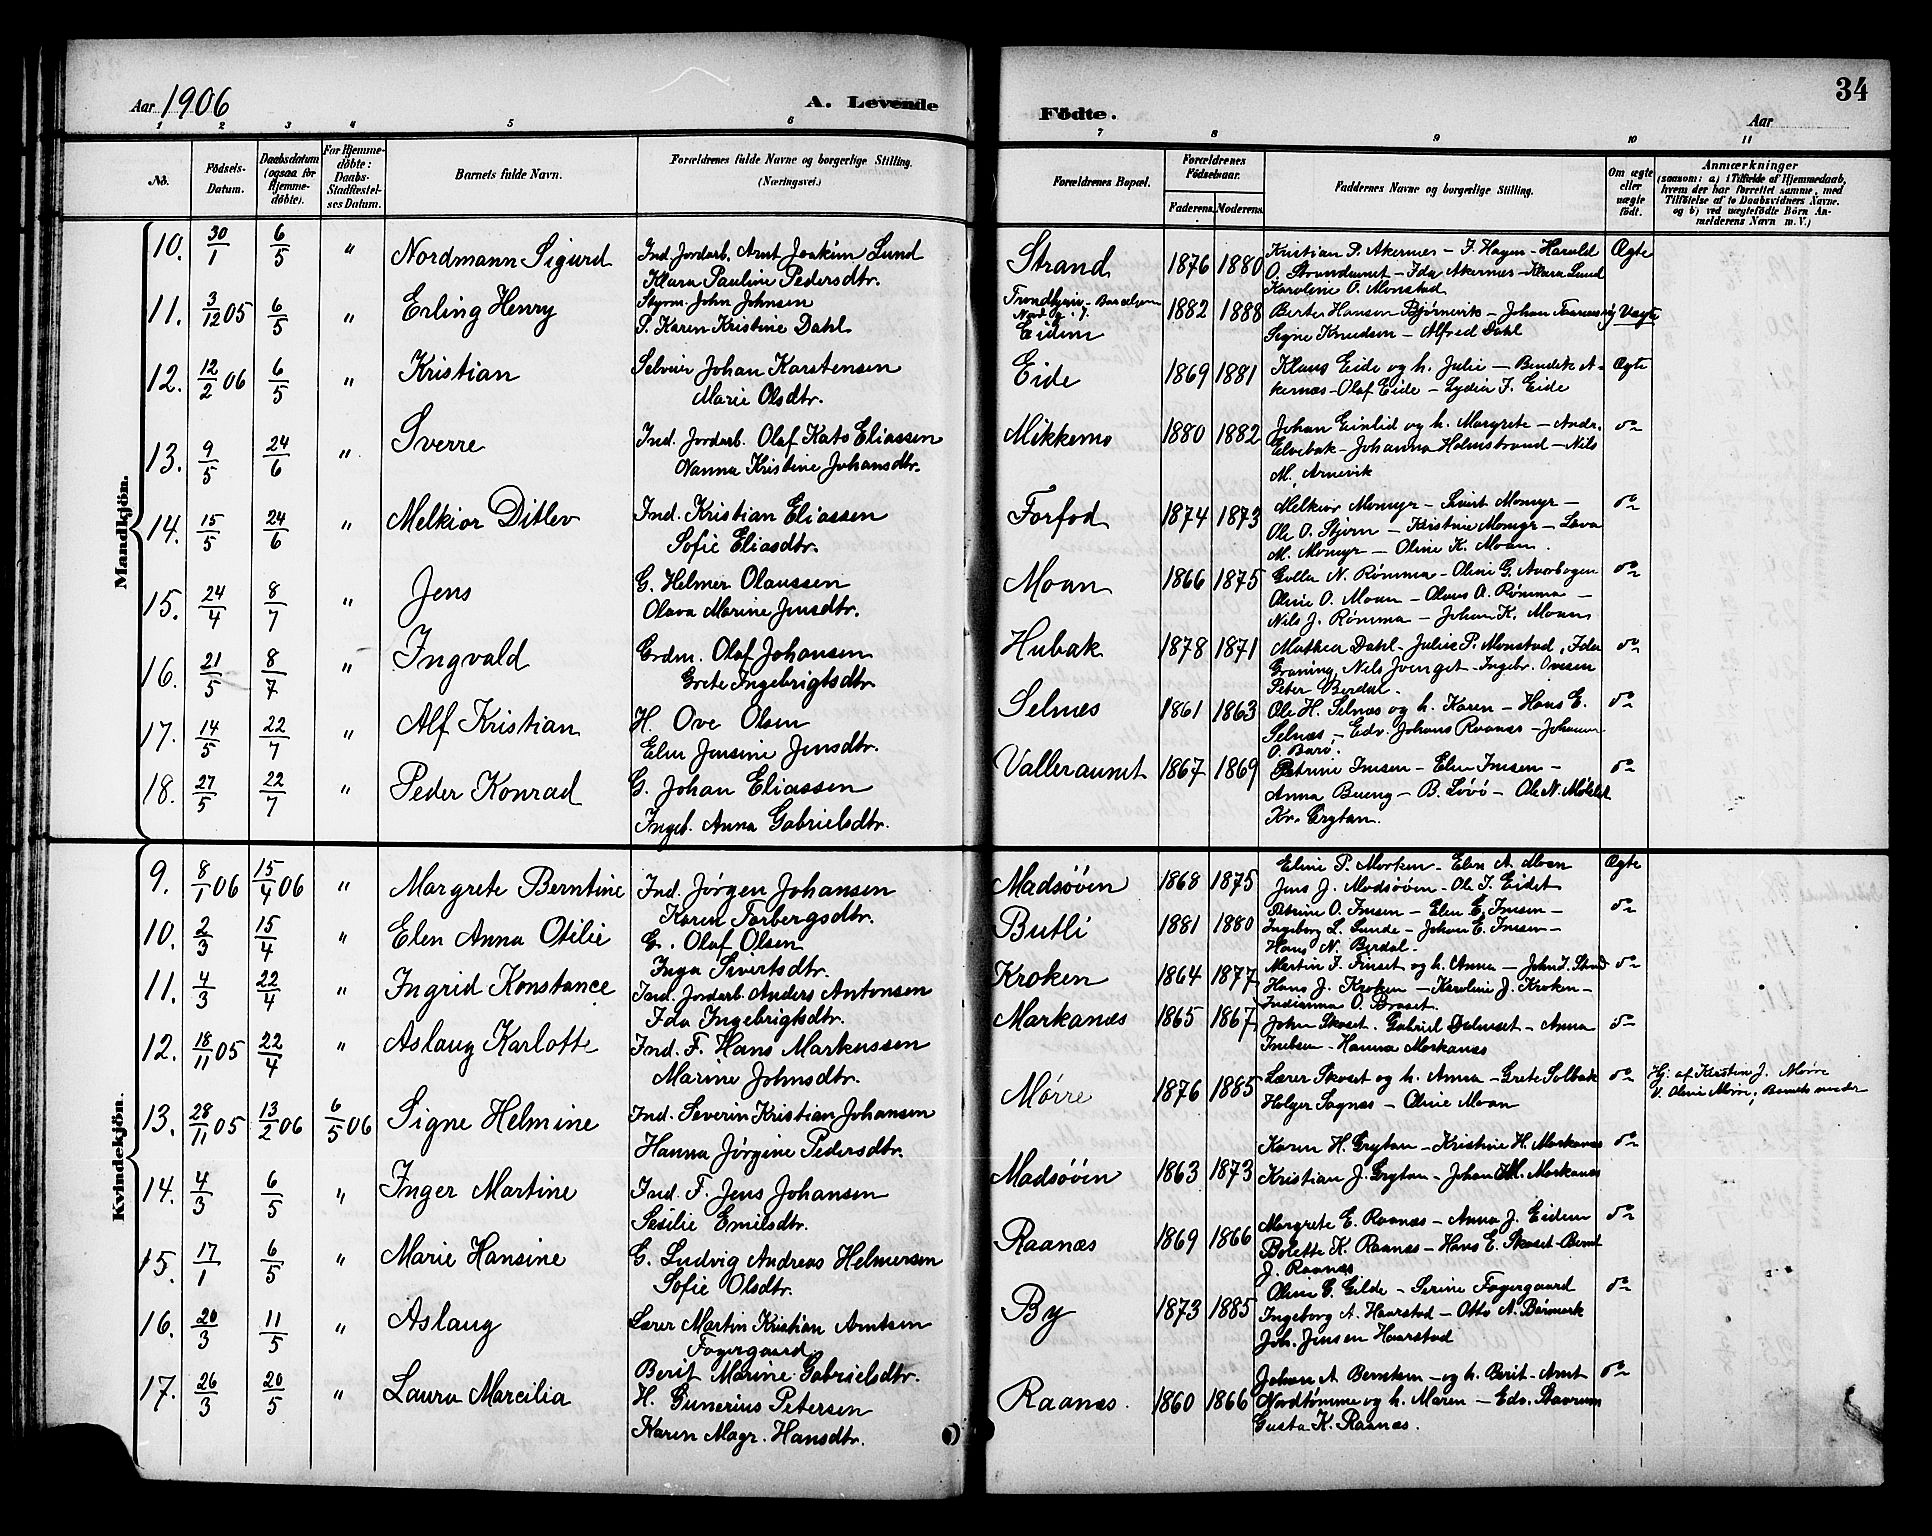 Aar 1906
A. Levende
Födte.
34
Aar
1 2 3 4 5 6 7 8 9 10 11
No. Födsels-Datum. Daabsdatum (ogsaa for Hjemme-döbte). For Hjemme-döbte: Daabs-Stadfæstel-ses Datum. Barnets fulde Navn. Forældrenes fulde Navne og borgerlige Stilling. (Næringsvei.) Forældrenes Bopæl. Forældrenes Födselsaar. Faderens. Moderens. Faddernes Navne og borgerlige Stilling. Om ægte eller uægte födt. Anmærkninger (saasom: a) i Tilfælde af Hjemmedaab, hvem der har forrettet samme, med Tilföielse af to Daabsvidners Navne. og b) ved uægtefödte Börn An-melderens Navn m. V.)
Mandkjön.
10. 30/1 6/5 " Nordmann Sigurd Ind. Jordarb. Arnt Joakim Lund Strand 1876 1880 Kristian P. Akernes – J. Hagen – Harald Ægte
Klara Pauline Pedersdtr. O. Strandaunet – Ida Akernes – Klara Lund
Karoline O. Monstad
11. 3/12 05 6/5 " Erling Henry Styrm. John Johnsen Trondhjem 1882 1888 Berte Hanson Bjørnevik – Johan Uægte
P. Karen Kristine Dahl Eidem Signe Knudsen – Alfred Dahl
12. 12/2 06 6/5 " Kristian Selveier Johan Karstensen Eide 1869 1881 Klaus Eide og h. Julie – Bendik A- Ægte
Marie Olsdtr. kernes – Olaf Eide – Lydia J. Eide
13. 9/5 24/6 " Sverre Ind. Jordarb. Olaf Kato Eliassen Mikkemo 1880 1882 Johan Einlid og h. Margrete – Andr. do
Nanna Kristine Johansdtr. Elvebak – Johanna Holmstrand – Nils
M. Arnevik
14. 15/5 24/6 " Melkior Ditlev Ind. Kristian Eliassen Forfod 1874 1873 Melkior Momyr – Sivert Momyr – do
Sofie Eliasdtr. Ole O. Stjørn – Kristine Momyr – Lava
M. Momyr – Oline K. Moan.
15. 24/4 8/7 " Jens G. Helmer Olaussen Moan 1866 1875 N. Rømma – Oline G. Aurbogen do
Olava Marine Jensdtr. Oline O. Moan – Olaus O. Rømma –
Nils J. Rømma – Johan K. Moan
16. 21/5 8/7 " Ingvald Grdm. Olaf Johansen Hubak 1878 1871 Mathea Dahl – Julie P. Monstad, Ida do
Grete Ingebrigtsdtr. Graning, Nils – Ingebr. Ovesen
Peter Berdal.
17. 14/5 22/7 " Alf Kristian H. Ove Olsen Selnæs 1861 1863 Ole H. Selnæs og h. Karen – Hans E. do
Elen Jensine Jensdtr. Selnæs – Edv. Johans Raanæs – Johanna
O. Barø.
18. 27/5 22/7 " Peder Konrad G. Johan Eliassen Valleraunet 1867 1869 Petrine Imsen – Elen Imsen – do
Ingeb. Anna Gabrielsdtr. Anna Bueng – B. Løvø – Ole N. Mølslet
Kr. Grytan.
Kvindekjön.
9. 8/1 06 15/4 06 " Margrete Berntine Ind. Jørgen Johansen Madsøøen 1868 1875 Eline P. Morken – Elen A. Moan Ægte
Karen Torbergsdtr. Jens J. Madsøøen – Ole J. Eidet
10. 2/3 15/4 " Elen Anna Otilie G. Olaf Olsen Butli 1881 1880 Petrine O. Imsen – Elen E. Imsen – do
Inga Sivertsdtr. Ingeborg L. Sunde – Johan E. Imsen –
Hans N. Berdal.
11. 4/3 22/4 " Ingrid Konstance Ind. Jordarb. Anders Antonsen Kroken 1864 1877 Martin J. Finset og h. Anna – John J. do
Ida Ingebrigtsdtr. Hans J. Kroken – Karoline J. Kroken –
Indianna O. Braset.
12. 18/11 05 22/4 " Aslaug Karlotte Ind. F. Hans Markussen Markanæs 1865 1867 John Skoset. Gabriel Dalaunet – Anna do
Marine Johnsdtr. – Hanna Markanæs
13. 28/11 05 13/2 06 6/5 06 Signe Helmine Ind. Severin Kristian Johansen Mørre 1876 1885 Lærer Skoset og h. Anna – Grete Solbak do Hj. af Kristine J. Mørre
Hanna Jørgine Pedersdtr. Holger Sagnæs – Oline Moan V. Oline Mørre, Barnets moder
14. 4/3 6/5 " Inger Martine Ind. F. Jens Johansen Madsøøen 1863 1873 Karen H. Grytan – Kristine H. Markanæs do
Sesilie Emilsdtr. Kristian J. Grytan – Johan M. Markanæs
15. 17/1 6/5 " Marie Hansine G. Ludvig Andreas Helmersen Raanæs 1869 1866 Margrete E. Raanæs – Anna J. Eidem do
Sofie Olsdtr. Bolette K. Raanæs – Hans E. Skoset – Bernt
J. Raanæs
16. 20/3 11/5 " Aslaug Lærer Martin Kristian Arntsen By 1873 1885 Oline G. Gilde – Serine Fagergaard do
Fagergaard Ingeborg A. Haarstad – Otto A. Bømark
Berit Marine Gabrielsdtr. Joh. Jensen Haarstad
17. 26/3 20/5 " Laura Marcilia H. Gunerius Petersen Raanæs. 1860 1866 Johan A. Berntsen – og h. Berit – Arnt do
Karen Magr. Hansdtr. Nordtømme og h. Maren – Edv. Stavrum
Gusta K. Raanæs.